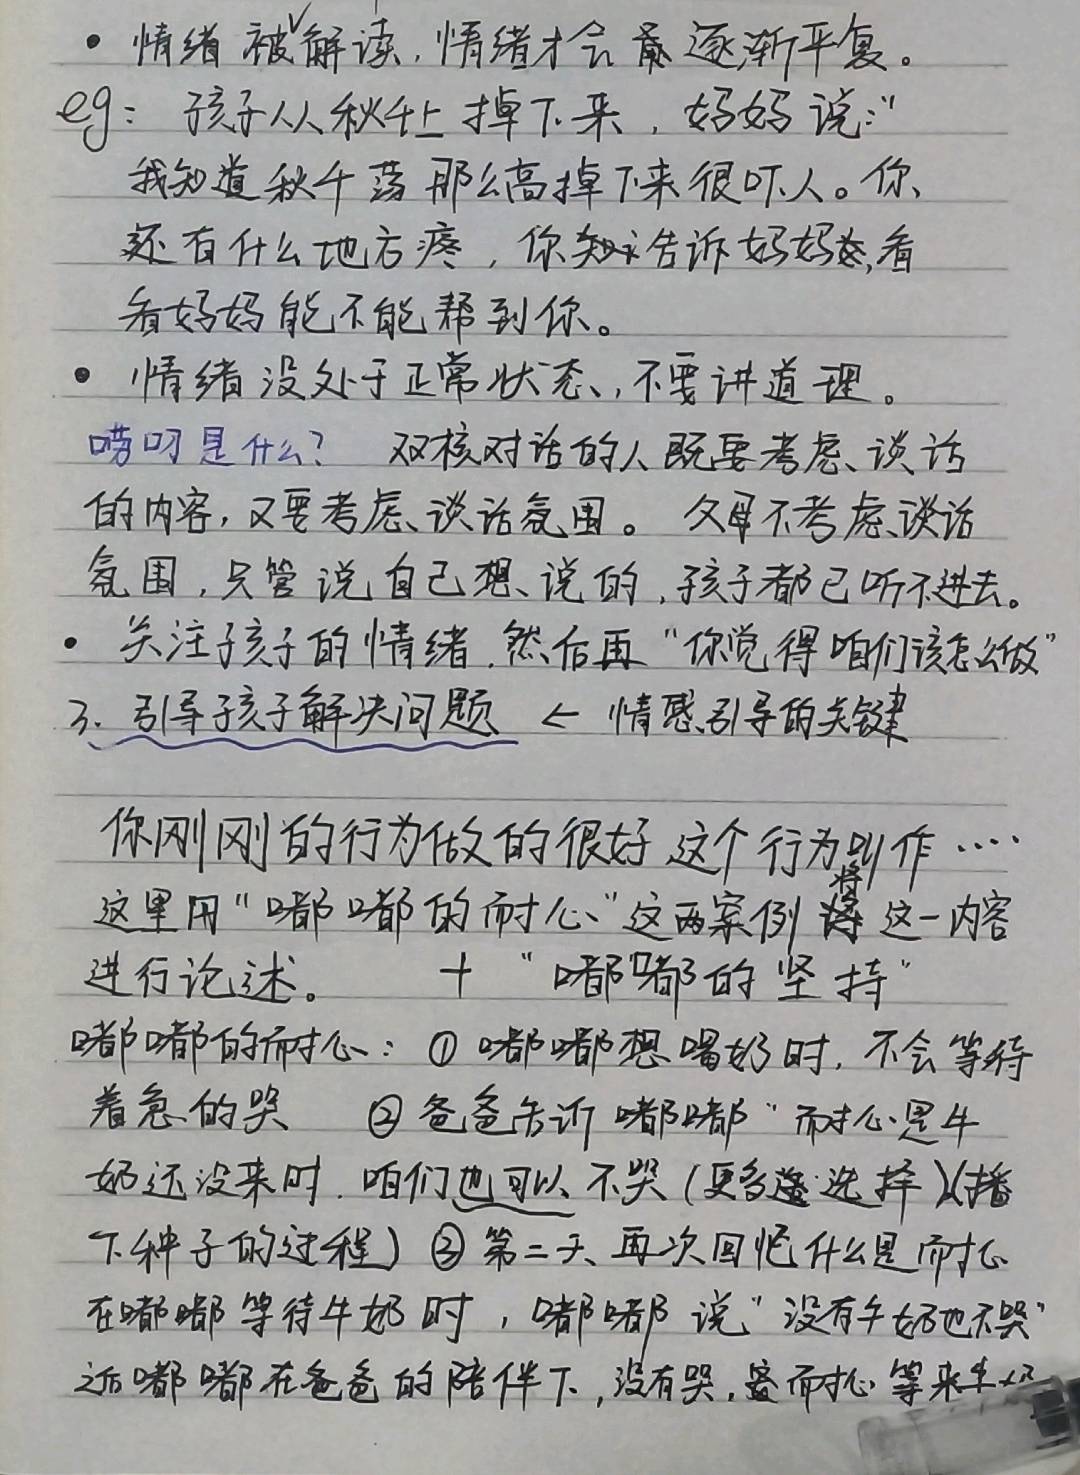 • 情绪被解读，情绪才会逐渐平复。
eg：孩子从秋千上掉下来，妈妈说：“
我知道秋千荡那么高掉下来很吓人。你
还有什么地方疼，你告诉妈妈，看
看妈妈能不能帮到你。
• 情绪没处于正常状态，不要讲道理。
唠叨是什么？ 双核对话的人既要考虑谈话
的内容，又要考虑谈话氛围。父母不考虑谈话
氛围，只管说自己想说的，孩子都已听不进去。
• 关注孩子的情绪，然后再“你觉得咱们该怎么做”
3、引导孩子解决问题 ← 情感引导的关键
你刚刚的行为做的很好 这个行为叫作……
这里用“嘟嘟的耐心”这两案例将这一内容
进行论述。 + “嘟嘟的坚持”
嘟嘟的耐心：① 嘟嘟想喝奶时，不会等待
着急的哭 ② 爸爸告诉嘟嘟“耐心是牛
奶还没来时，咱们也可以不哭（更多选择）（播
下种子的过程）③ 第二天再次回忆什么是耐心
在嘟嘟等待牛奶时，嘟嘟说“没有牛奶也不哭”
嘟嘟在爸爸的陪伴下，没有哭，耐心等来牛奶